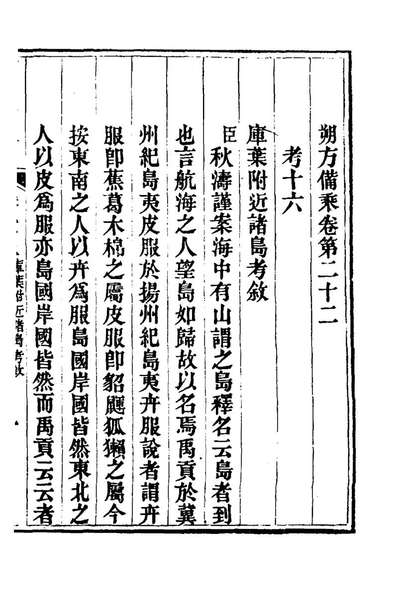 朔方備乘卷第二十二
考十六
庫葉附近諸島考敘
臣秋濤謹案海中有山謂之島釋名云島者到
也言航海之人望島如歸故以名焉禹貢於冀
州紀島夷皮服於揚州紀島夷卉服說者謂卉
服卽蕉葛木棉之屬皮服卽貂鼴狐獺之屬今
按東南之人以卉爲服島國岸國皆然東北之
人以皮爲服亦島國岸國皆然而禹貢云云者
庫葉附近諸島考敘